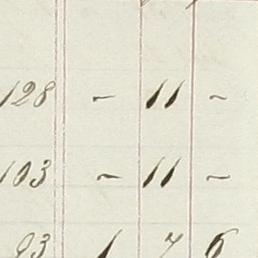 128 - 11 -
103 - 11 -
93 1 7 6